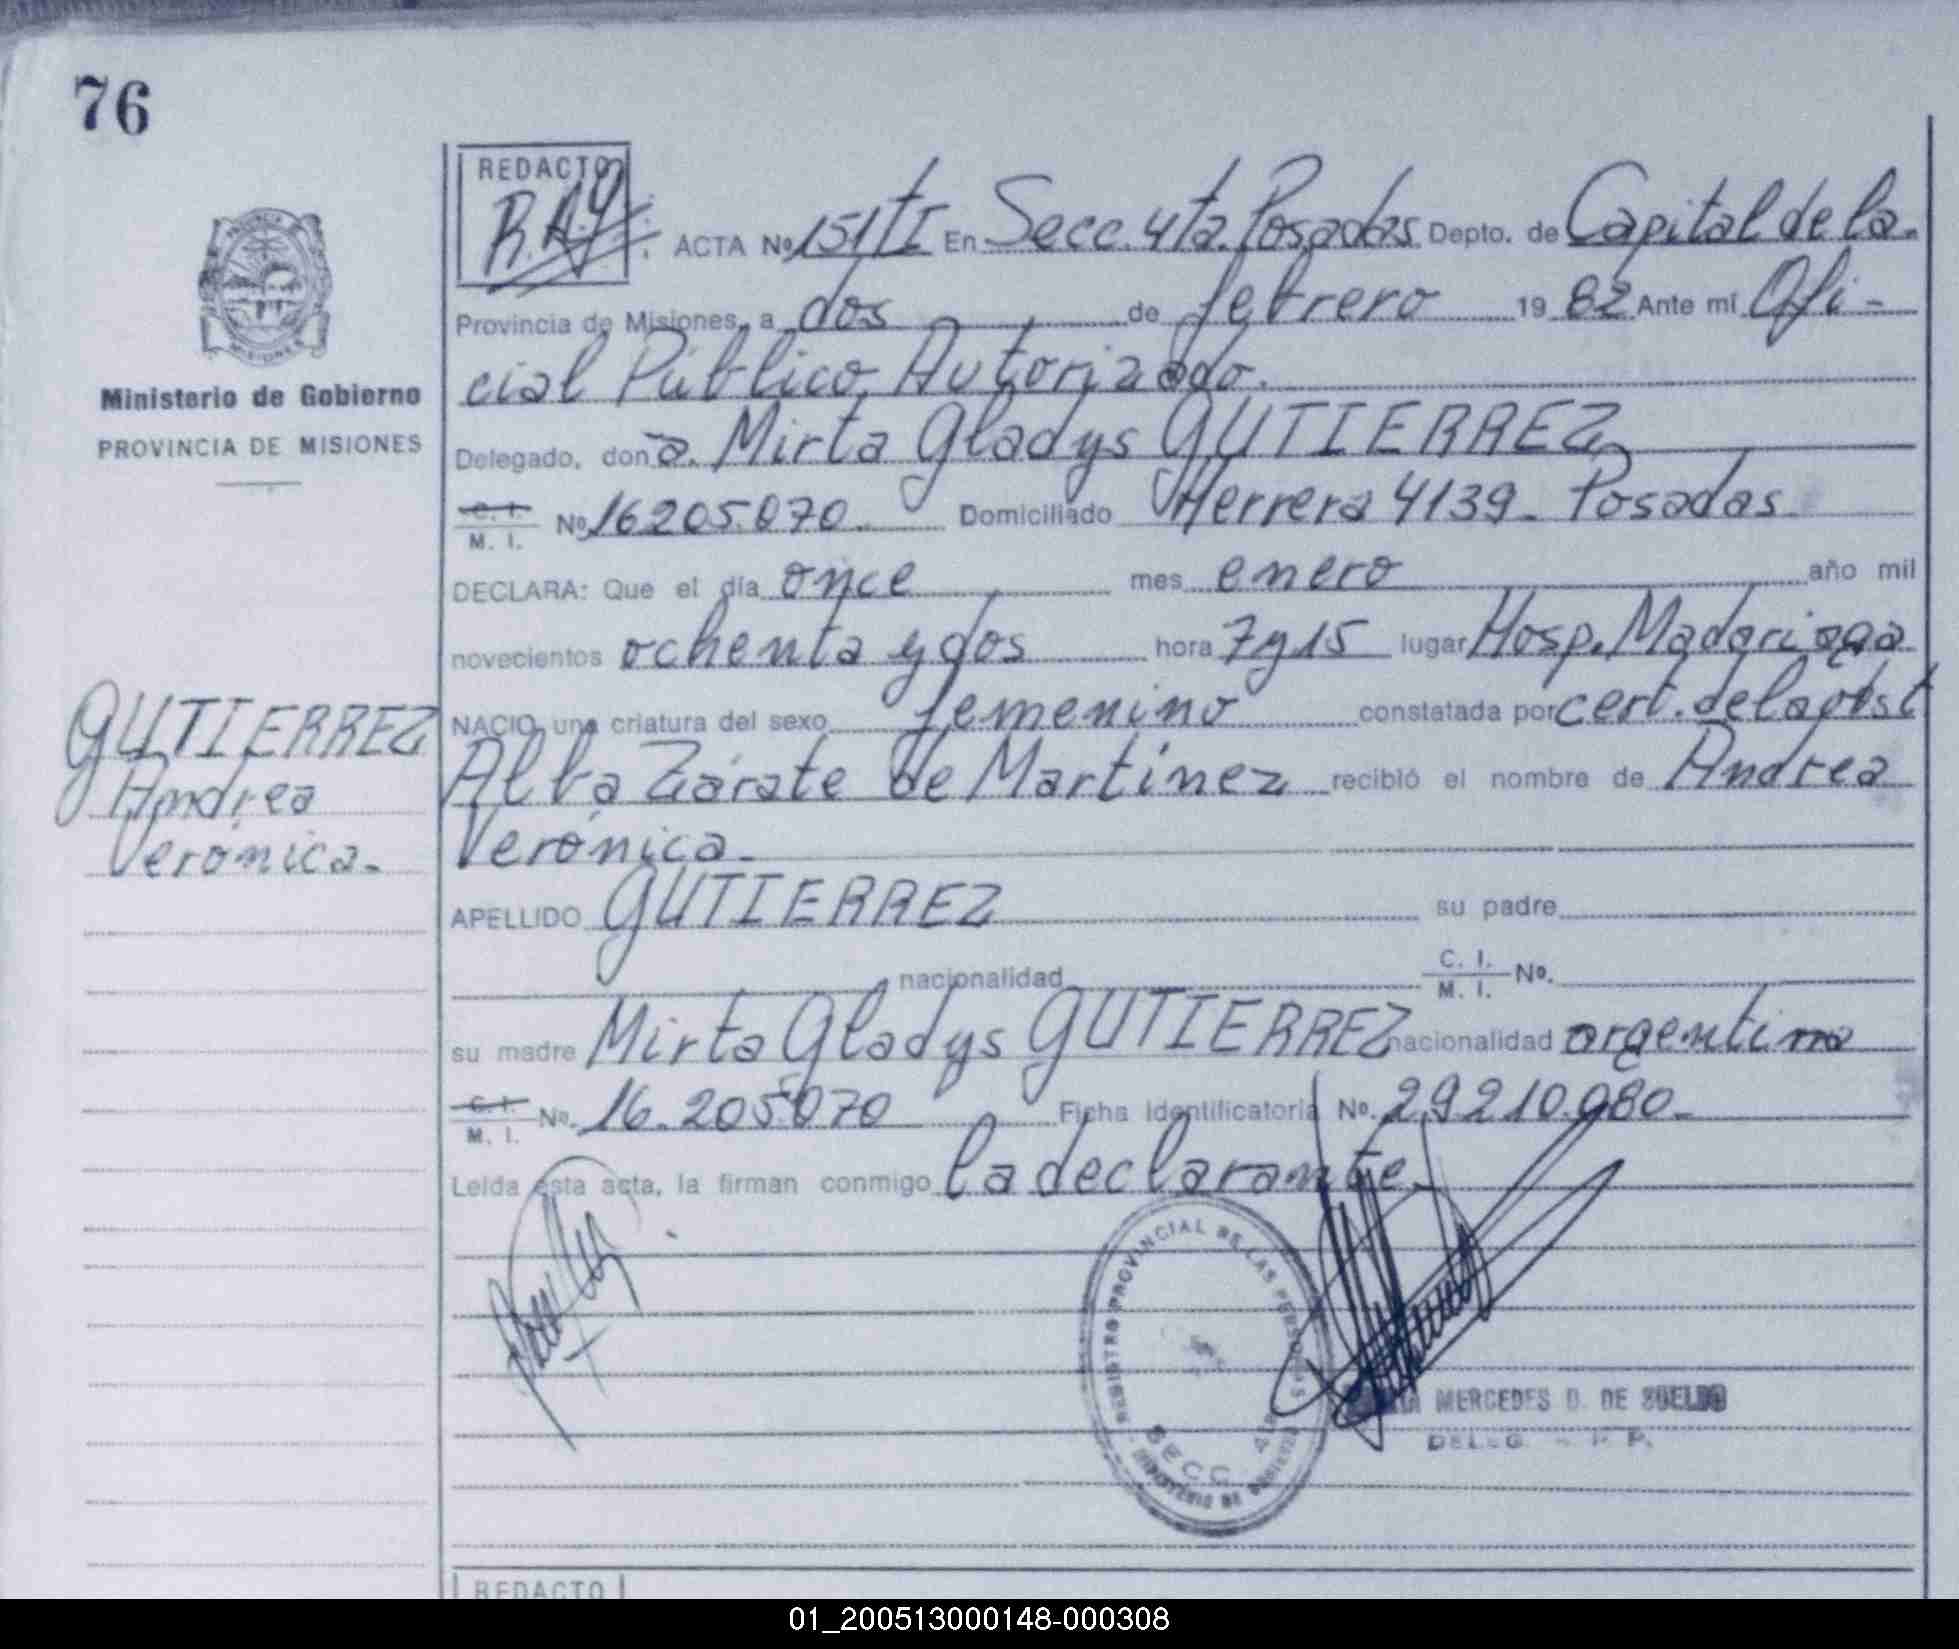 76
REDACTO
ACTA Nº 151 tI En Secc. 4ta. Posadas Depto. de Capital de la.
Provincia de Misiones, a dos de febrero 19 82 Ante mí Ofi-
cial Público Autorizado.
Delegado, don a. Mirta Gladys GUTIERREZ
C. I.
M. I. Nº 16205.070. Domiciliado Herrera 4139 - Posadas.
DECLARA: Que el día once mes enero año mil
novecientos ochenta y dos hora 7y15 lugar Hosp. Madariaga
NACIO una criatura del sexo femenino constatada por cert. de la obst
Alba Zárate de Martinez recibió el nombre de Andrea
Verónica.
APELLIDO GUTIERREZ su padre
nacionalidad C. I.
M. I. Nº.
su madre Mirta Gladys GUTIERREZ nacionalidad argentina
C. I.
M. I. Nº. 16.205.070 Ficha Identificatoria Nº. 29210.080-
Leída esta acta, la firman conmigo la declarante.
PROVINCIA
MISIONES
Ministerio de Gobierno
PROVINCIA DE MISIONES
GUTIERREZ
Andrea
Verónica.
REGISTRO PROVINCIAL DE LAS PERSONAS
SECC. 4ta
MINISTERIO DE GOBIERNO
MERCEDES D. DE SUELDO
DELEG. R. P. P.
REDACTO
01_200513000148-000308